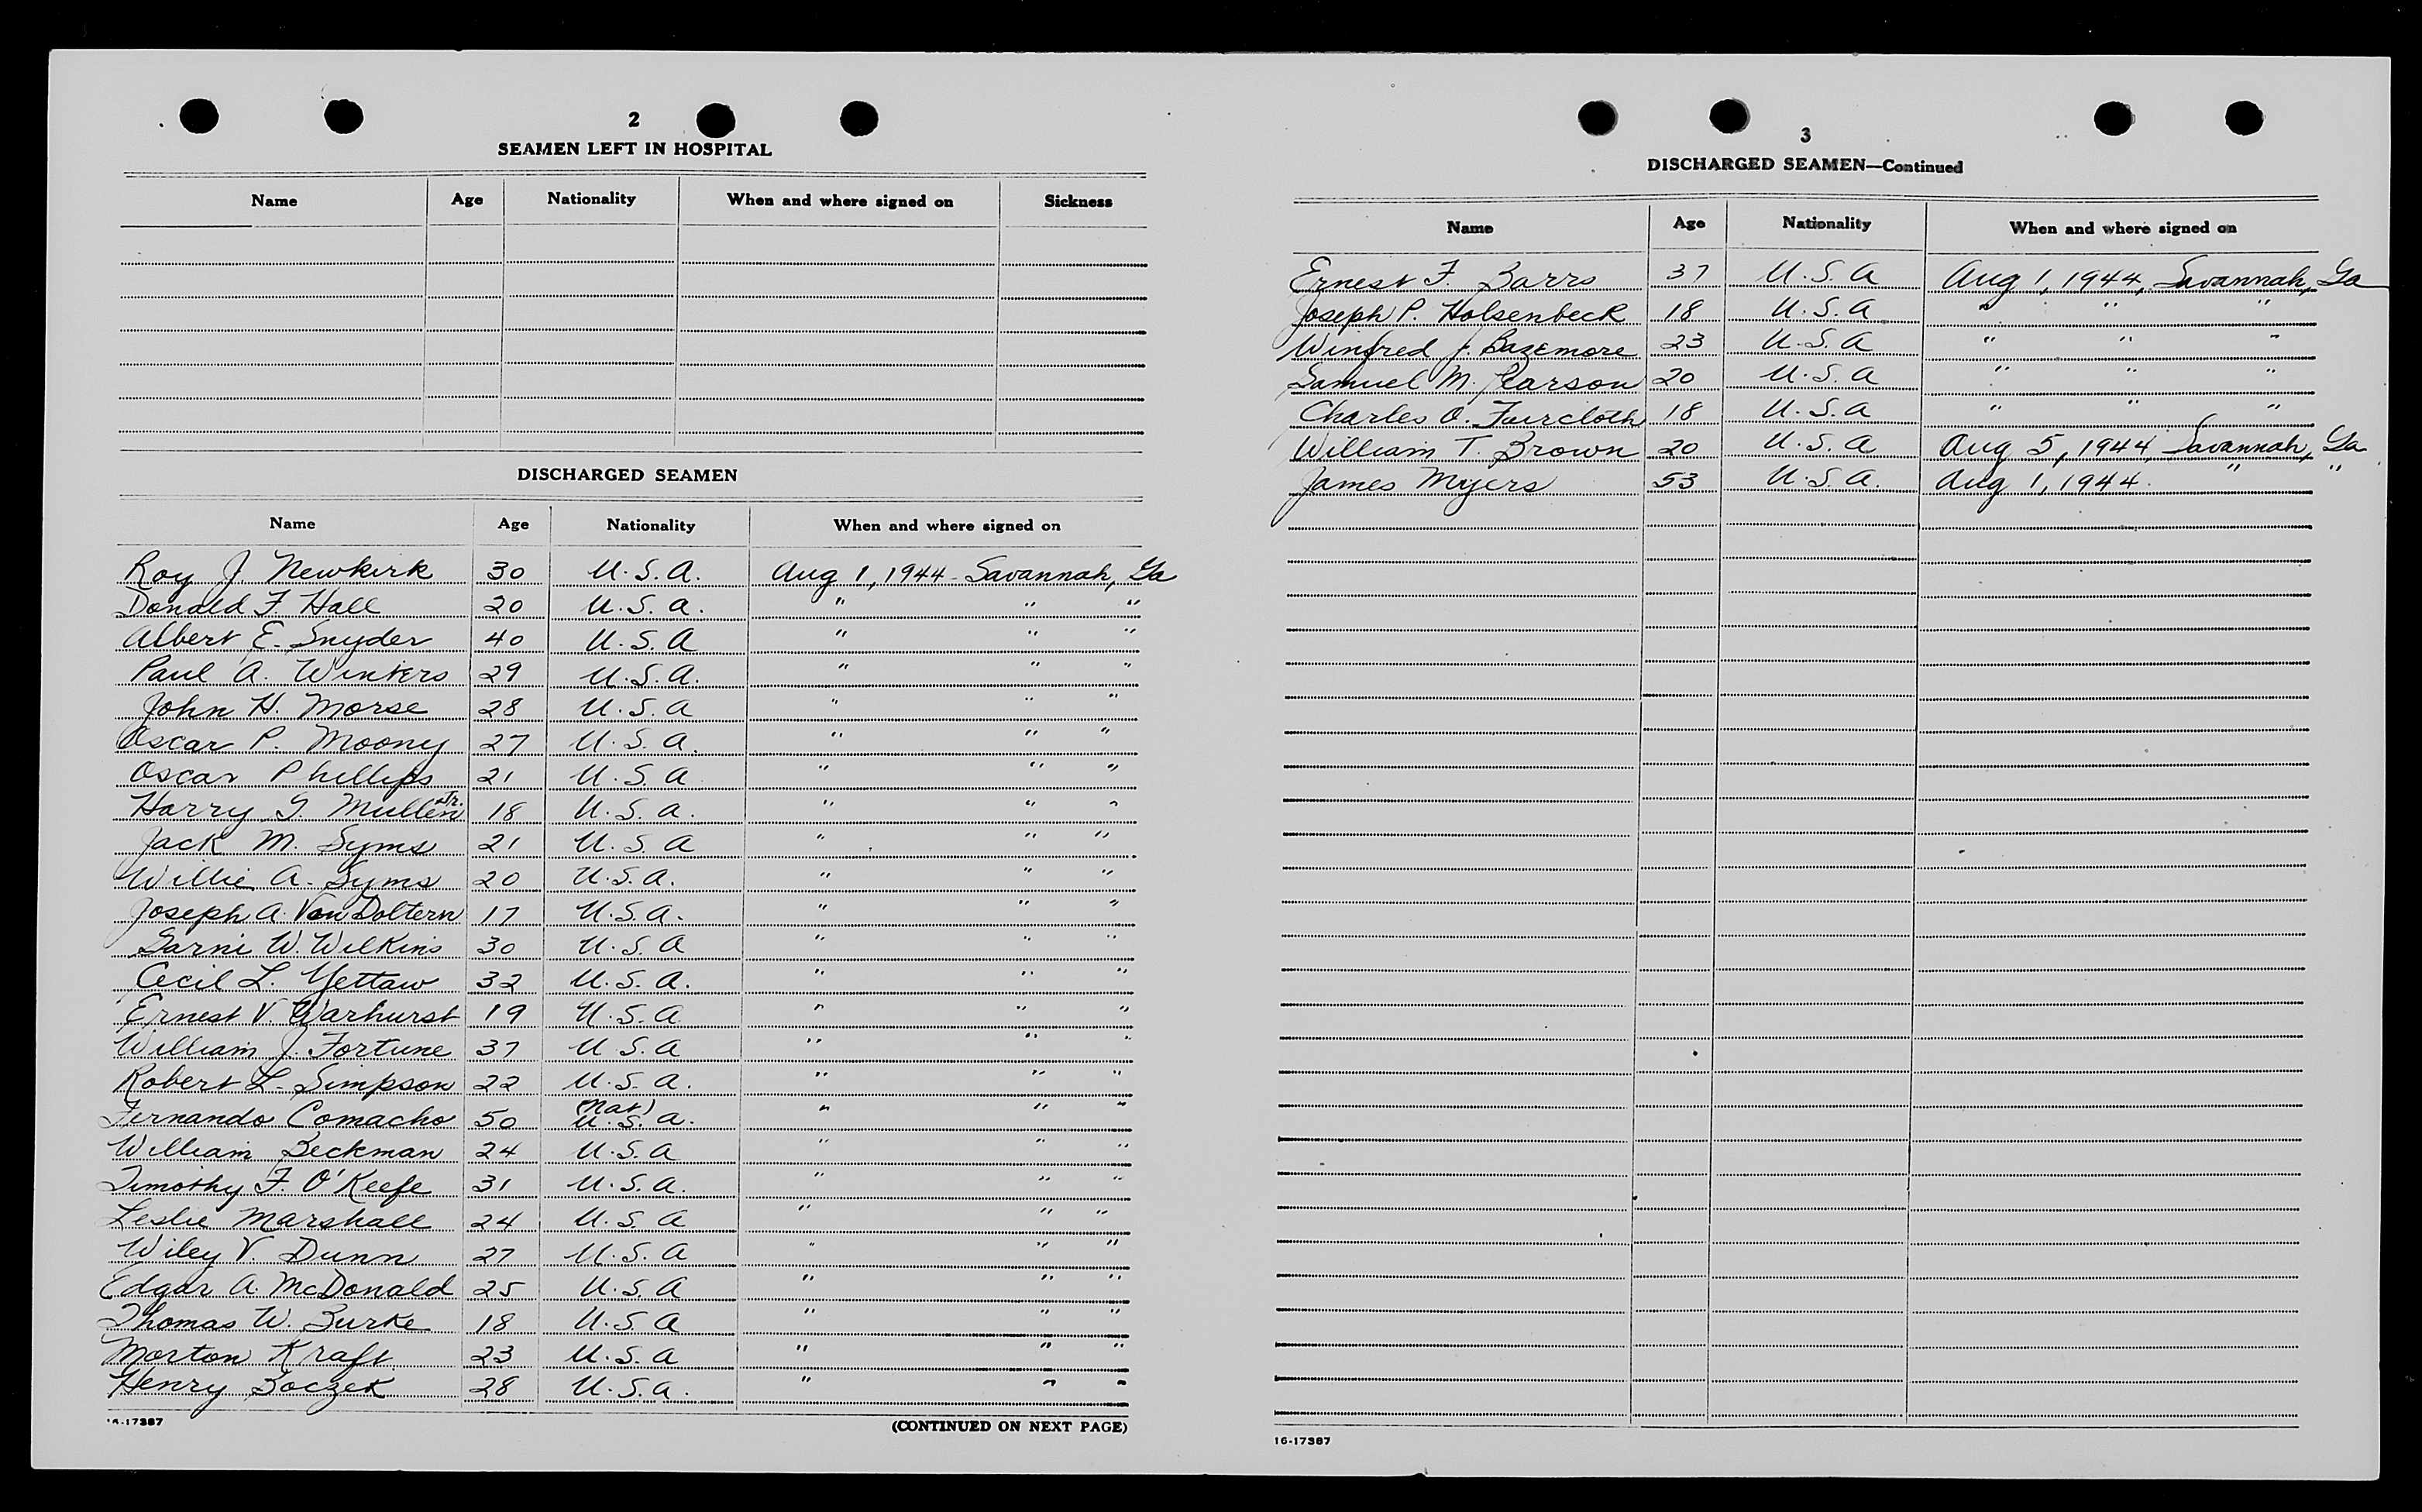 2
SEAMEN LEFT IN HOSPITAL
Name Age Nationality When and where signed on Sickness
DISCHARGED SEAMEN
Name Age Nationality When and where signed on
Roy J. Newkirk 30 U.S.A. Aug 1, 1944 - Savannah, Ga
Donald F. Hall 20 U.S.A. " " "
Albert E. Snyder 40 U.S.A " " "
Paul A. Winters 29 U.S.A. " " "
John H. Morse 28 U.S.A " " "
Oscar P. Moony 27 U.S.A. " " "
Oscar Phillips 21 U.S.A " " "
Harry G. Mullen Jr. 18 U.S.A. " " "
Jack M. Syms 21 U.S.A " " "
Willie A. Syms 20 U.S.A. " " "
Joseph A. Von Doltern 17 U.S.A. " " "
Garni W. Wilkins 30 U.S.A " " "
Cecil L. Yettaw 32 U.S.A. " " "
Ernest V. Warhurst 19 U.S.A " " "
William J. Fortune 37 U.S.A " " "
Robert L. Simpson 22 U.S.A. " " "
Fernando Comacho 50 (Nat) U.S.A. " " "
William Beckman 24 U.S.A " " "
Timothy F. O'Keefe 31 U.S.A. " " "
Leslie Marshall 24 U.S.A " " "
Wiley V. Dunn 27 U.S.A " " "
Edgar A. McDonald 25 U.S.A " " "
Thomas W. Burke 18 U.S.A " " "
Morton Kraft 23 U.S.A " " "
Henry Boczek 28 U.S.A. " " "
16-17387
(CONTINUED ON NEXT PAGE)
3
DISCHARGED SEAMEN—Continued
Name Age Nationality When and where signed on
Ernest F. Barrs 37 U.S.A Aug 1, 1944, Savannah, Ga
Joseph P. Holsenbeck 18 U.S.A. " " "
Winfred J. Bazemore 23 U.S.A " " "
Samuel M. Pearson 20 U.S.A " " "
Charles O. Faircloth 18 U.S.A " " "
William T. Brown 20 U.S.A Aug 5, 1944, Savannah, Ga
James Myers 53 U.S.A. Aug 1, 1944. " "
16-17387